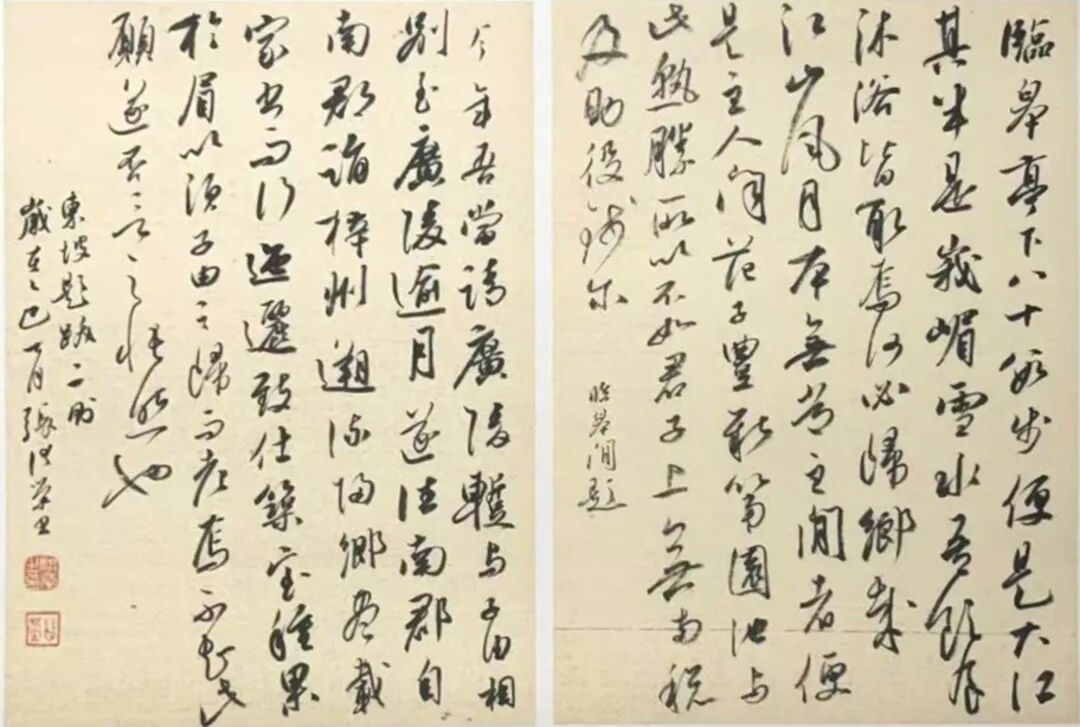 臨皋亭下八十餘步便是大江
其半是峨嵋雪水吾飲食
沐浴皆取焉何必歸鄉哉
江山風月本無常主閒者便
是主人聞范子豐新第園池與
此孰勝所以不如君子上無兩稅
及助役錢尔
臨皋閒題
今年吾當請廣陵暫與子由相
別至廣陵逾月遂往南郡自
南郡詣梓州溯流歸鄉盡載
家書而行迤邐致仕築室種果
於眉以須子由之歸而老焉不知此
願遂否言之悵然也
東坡題跋二則
歲在乙巳月張書